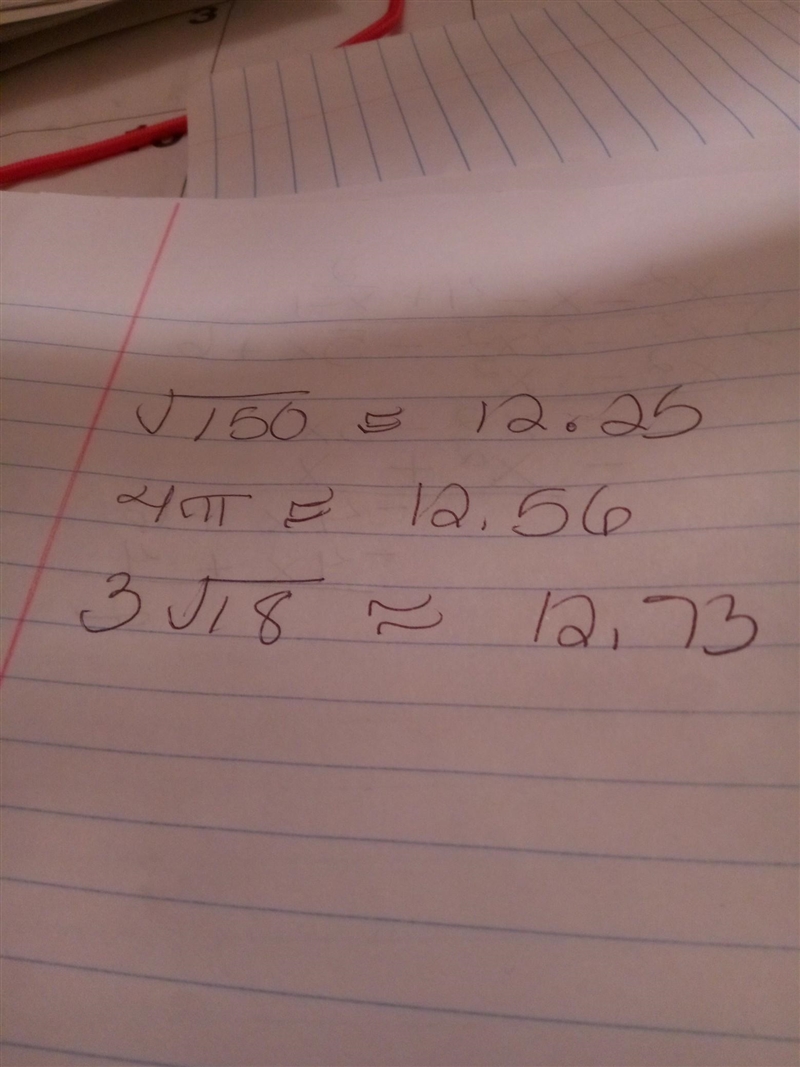 3
16
√150 ≈ 12.25
4π ≈ 12.56
3√18 ≈ 12.73